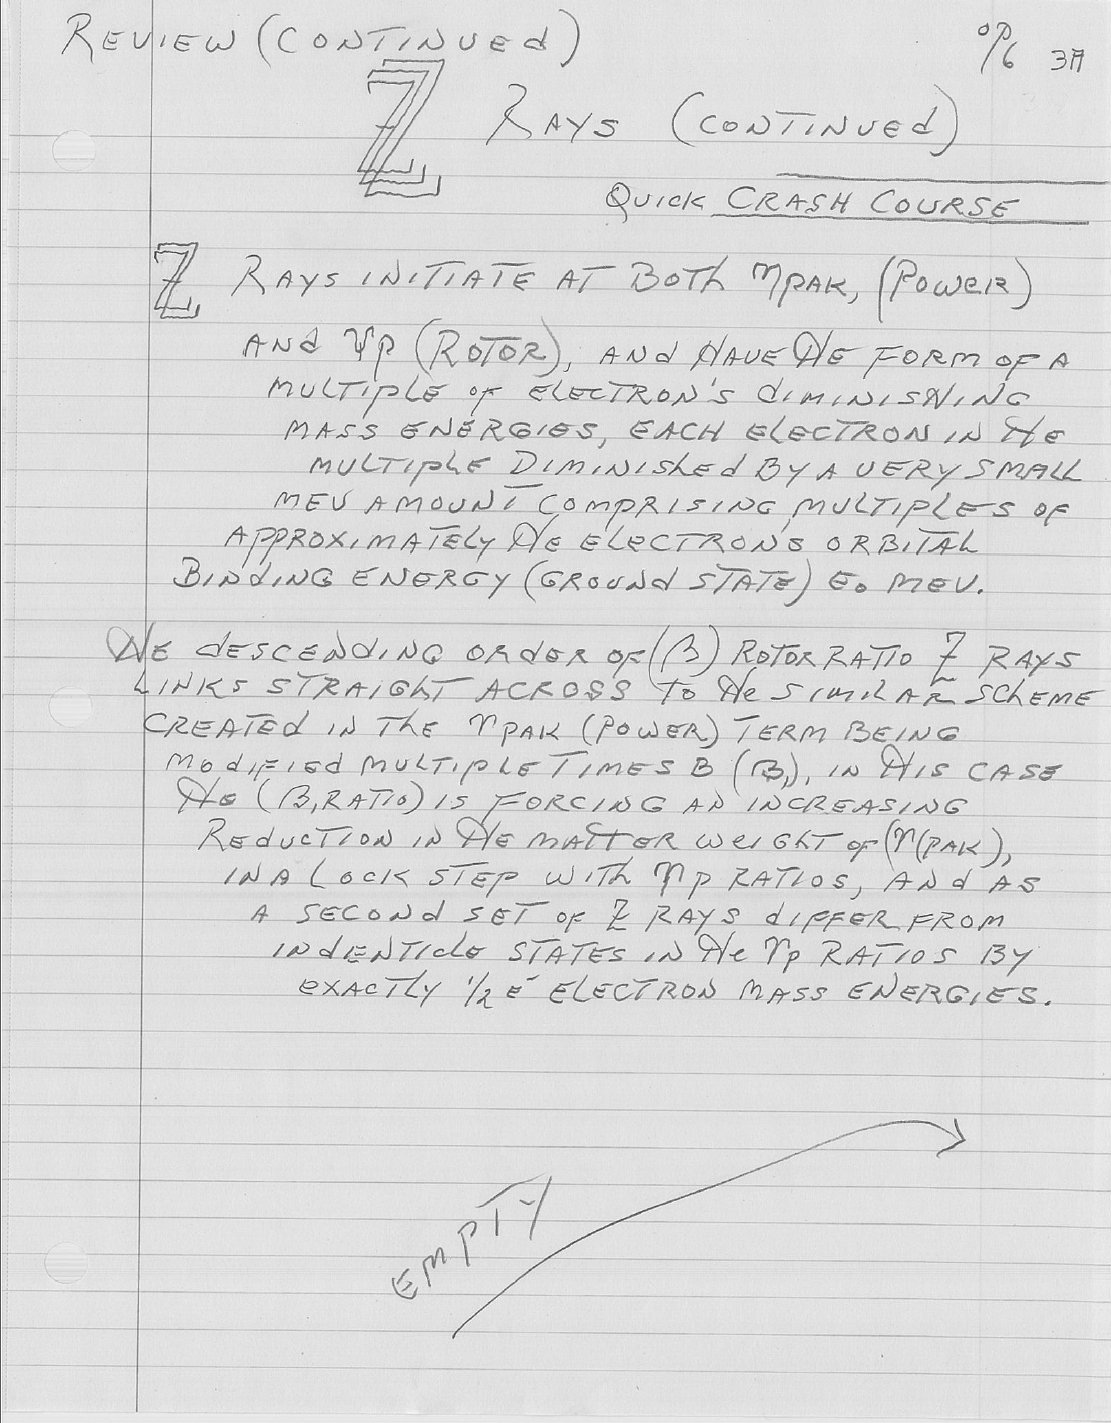 REVIEW (CONTINUED)
3A
Z RAYS (CONTINUED)
QUICK CRASH COURSE
Z RAYS INITIATE AT BOTH ηPAK, (POWER)
AND Ψp (ROTOR), AND HAVE THE FORM OF A
MULTIPLE OF ELECTRON'S DIMINISHING
MASS ENERGIES, EACH ELECTRON IN THE
MULTIPLE DIMINISHED BY A VERY SMALL
MEV AMOUNT COMPRISING MULTIPLES OF
APPROXIMATELY THE ELECTRONS ORBITAL
BINDING ENERGY (GROUND STATE) E₀ MEV.
THE DESCENDING ORDER OF (β) ROTOR RATIO Z RAYS
LINKS STRAIGHT ACROSS TO THE SIMILAR SCHEME
CREATED IN THE ηPAK (POWER) TERM BEING
MODIFIED MULTIPLE TIMES B (β₁), IN THIS CASE
THE (β, RATIO) IS FORCING AN INCREASING
REDUCTION IN THE MATTER WEIGHT OF (η(PAK),
IN A LOCK STEP WITH ηp RATIOS, AND AS
A SECOND SET OF Z RAYS DIFFER FROM
INDENTICLE STATES IN THE ηp RATIOS BY
EXACTLY 1/2 e⁻ ELECTRON MASS ENERGIES.
EMPTY